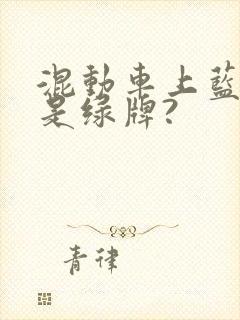 混動車上藍
是綠牌?
青律